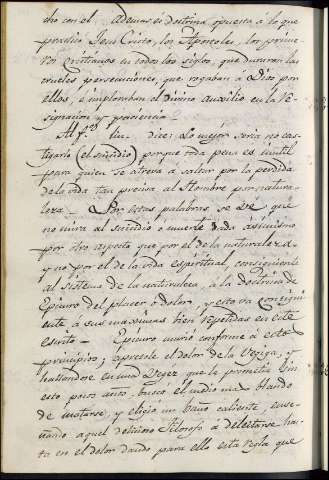 cho con el — Además es doctrina opuesta á lo que
practicó Jesu Cristo, los Apostoles, los prime-
ros cristianos en todos los siglos, que duraron las
crueles persecuciones, que rogaban á Dios por
ellos, é imploraban el divino auxîlio en la re-
signacion y paciencia.
Al fº dice: Lo mejor sería no cas-
tigarlo (el suicidio) porque toda pena es inutil
para quien se atreva á saltar por la perdida
de la vida tan precisa al Hombre por natura-
leza. — Por estas palabras se ve que
no mira al suicidio ó muerte dada á sí mismo
por otro aspecto que por el de la naturaleza
y no por el de la vida espiritual, consiguiente
al sistema de la naturaleza, á la doctrina de
Epicuro del placer ó dolor, y esto va consigui
ente á sus maximas bien repetidas en este
escrito — Epicuro murió conforme á estos
principios; apretole el dolor de la vegiga, y
hallandose en una vejez que le prometia vivir
esto pocos años, buscó el medio mas blando
de matarse, y eligió un baño caliente, ense-
ñando aquel Filosofo á deleitarse has-
ta en el dolor dando para ello esta regla que